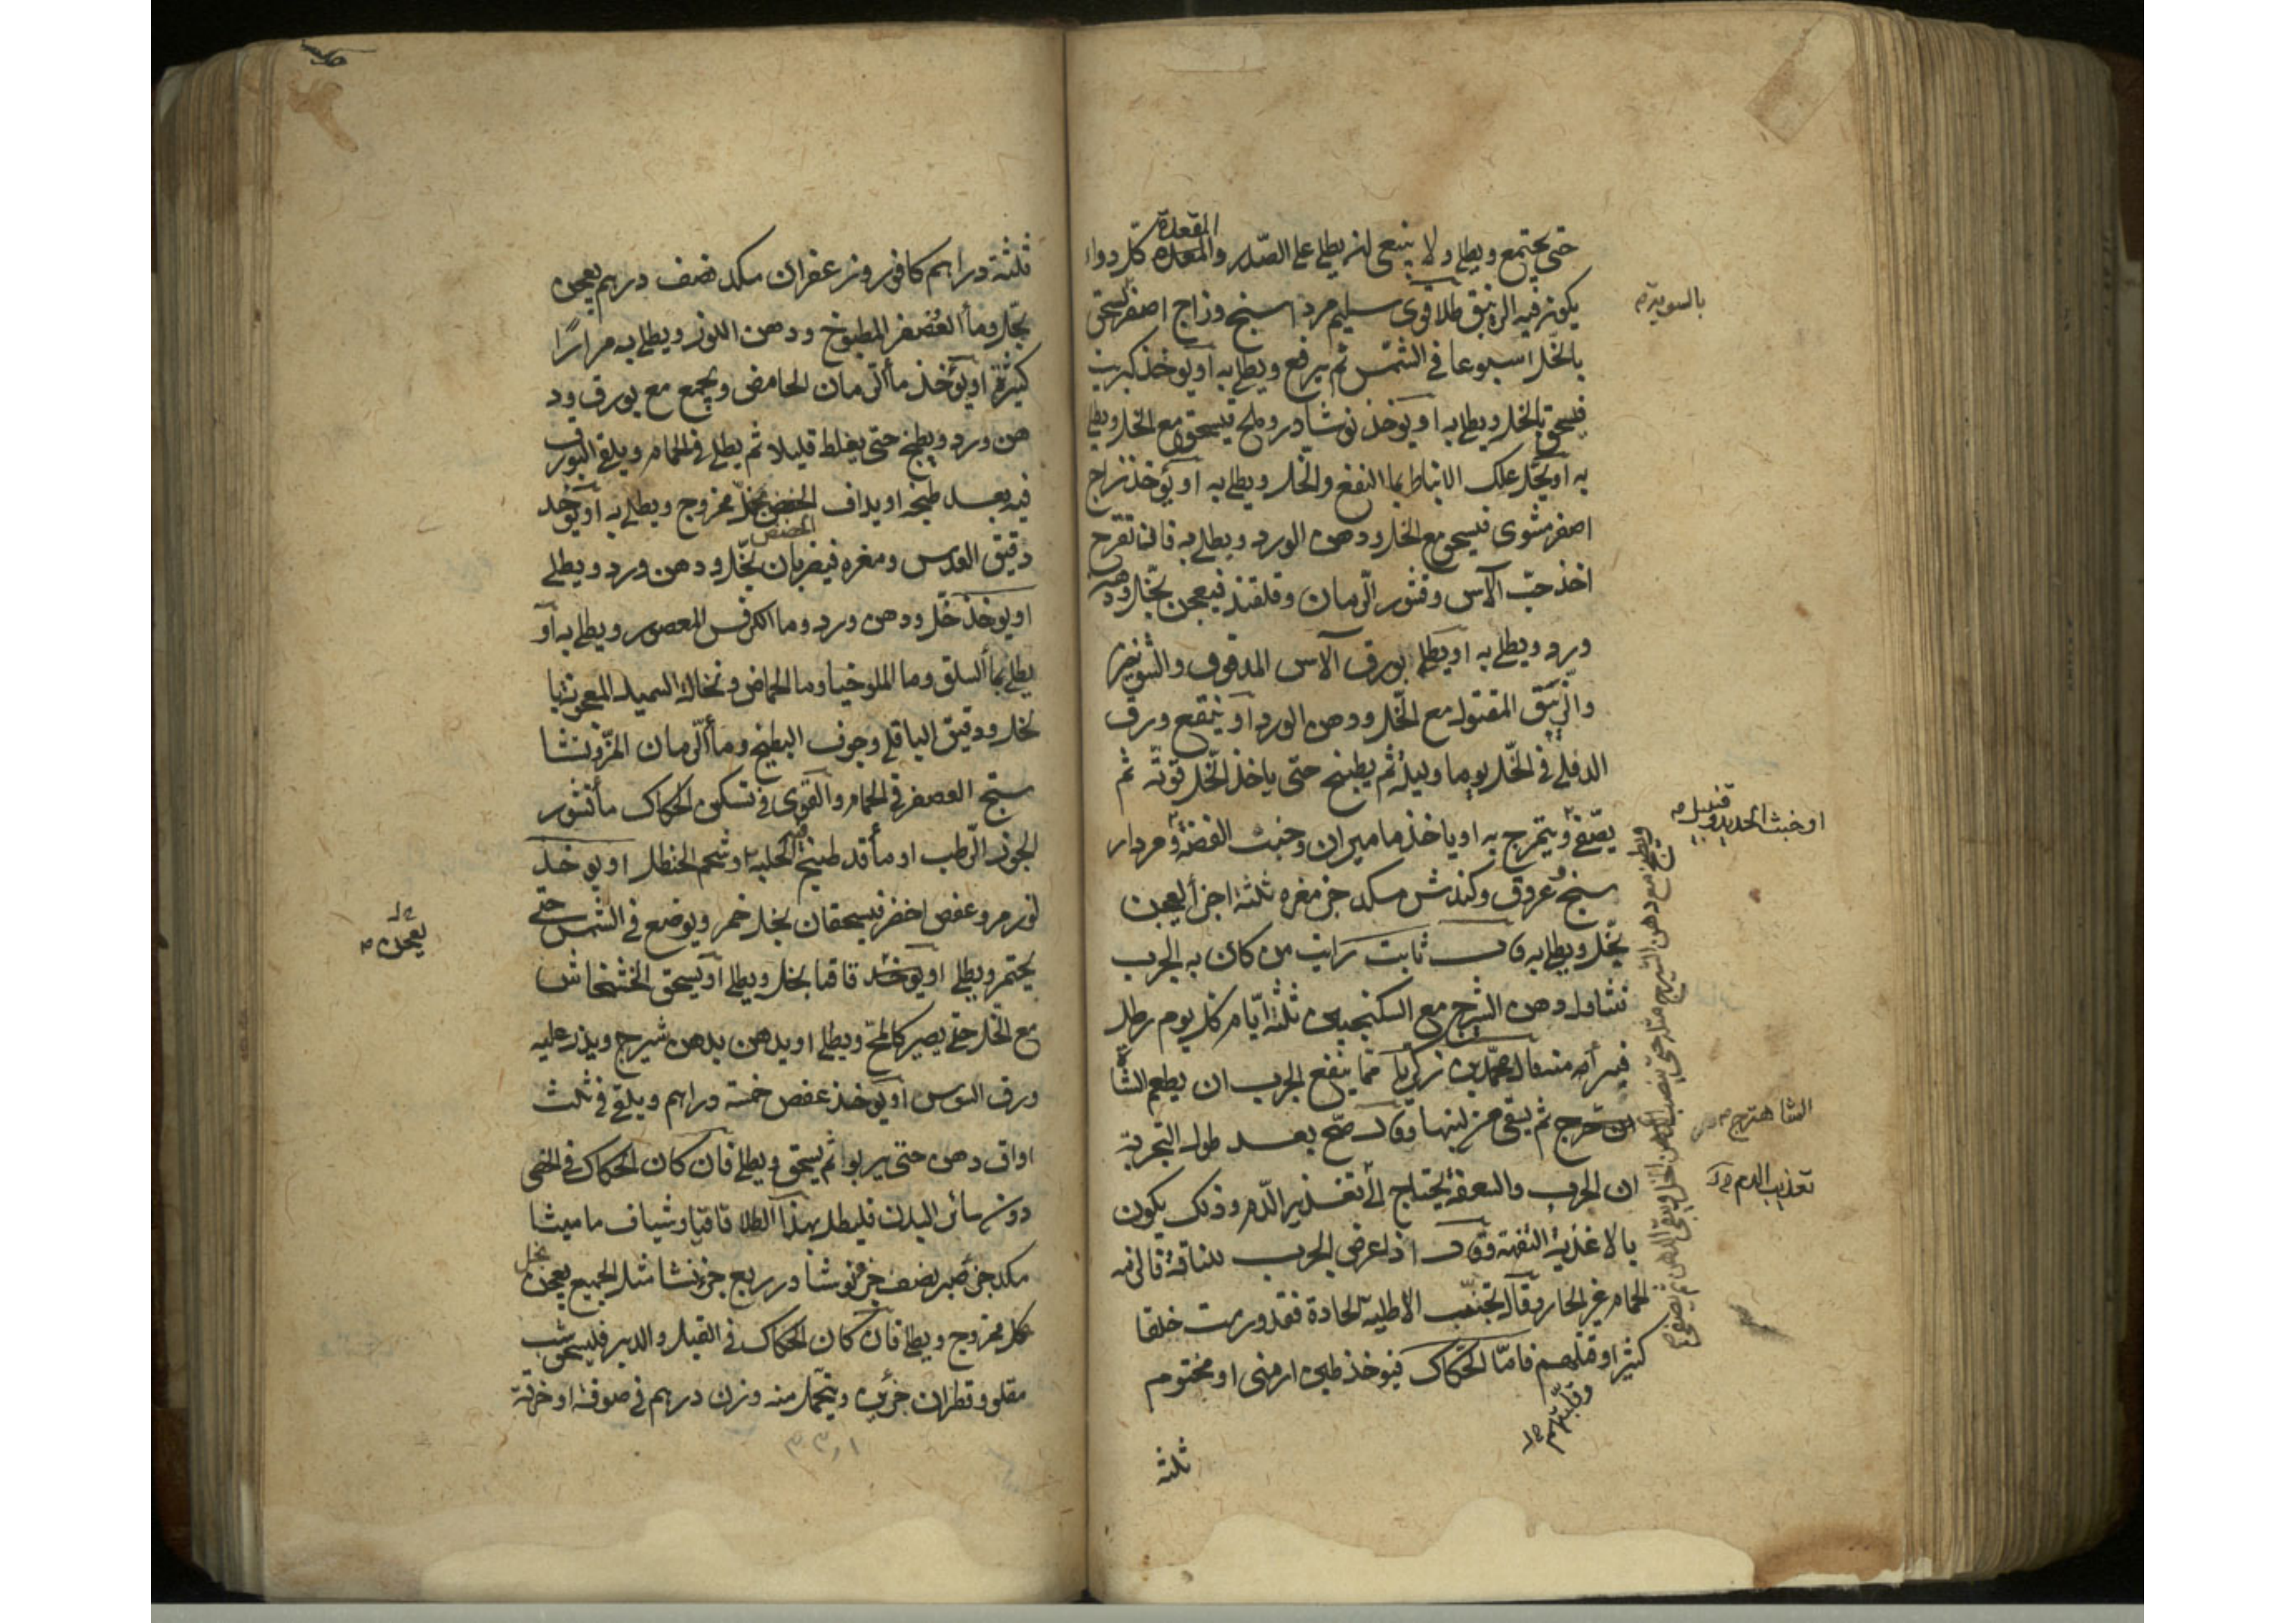 حتى يجتمع ويطلى ولا ينبغى ان يطلى على الصدر والمعدة كل دواء
المقعدة
يكون فيه الزيبق طلا قوى سليم مرداسنج وزاج اصفر يسحق
بالسوية
بالخل اسبوعا فى الشمس ثم يرفع ويطلى به او يوخذ كبريت
فيسحق بالخل ويطلى به او يوخذ نوشادر وملح فيسحق مع الخل ويطلى
به او يحل علك الانباط بما النعنع والخل ويطلى به او يؤخذ زاج
اصفر مشوى فيسحق مع الخل ودهن الورد ويطلى به فان تقرح
اخذ حب الآس وقشور الرمان وقلقند فيعجن بخل ودهن
ورد ويطلى به او يطلى بورق الآس المدقوق والشونيز
والزيبق المقتول مع الخل ودهن الورد او ينقع ورق
الدفلى فى الخل يوما وليلة ثم يطبخ حتى ياخذ الخل قوته ثم
يصفى ويتمرخ به او ياخذ ماميران وخبث الفضة ومردار
او خبث الحديد وقنبيل
سنج وعروق وكندش مكد جز مغره ثلثة اجزأ يعجن
بخل ويطلى به قال ثابت رايت من كان به الجرب
تناول دهن الشيرج مع السكنجبين ثلثة ايام كل يوم رطل
فبرأ منه قال محمد بن زكريا مما ينفع الجرب ان يطعم الشا
ثم يسقى من لبنها وقال صح بعد طول التجربة
الشاهترج
ان الجرب والسعفة يحتاج الى تغذير الدم وذلك يكون
تعذيب الدم
بالاغذية التفهة وقال اذا عرض الجرب للناقة فالزمه
الحمام غير الحار وقال تجنب الاطلية الحادة فقد ورمت خلقا
كثيرا وقتلهم فاما الحكاك فيوخذ طين ارمنى او مختوم
ويطبخ مع دهن الشيرج مثله حتى ينضب الخل ويبقى الدهن ثم يصفى
ثلثة
ثلثة دراهم كافور وزعفران مكد نصف درهم يعجن
بخل وما العصفر المطبوخ ودهن اللوز ويطلى به مرارًا
كثيرة او يؤخذ ما الرمان الحامض ويجمع مع بورق ود
هن ورد ويطبخ حتى يغلط قليلا ثم يطلى فى الحمام ويلقى البورق
فيه بعد طبخه او يداف الحضض بخل ممزوج ويطلى به او يوخد
الحضض
دقيق العدس ومغره فيضربان بخل ودهن ورد ويطلى
او يوخذ خل ودهن ورد وما الكرفس المعصور ويطلى به او
يطلى بما السلق وما الملوخيا وما الحماض ونخالة السميد المعجونة با
لخل ودقيق الباقلى وجوف البطيخ وما الرمان المز ونشا
ستج العصفر فى الحمام والقوى فى تسكين الحكاك ما قشور
الجوز الرطب او ما قد طبخ فيه الحلبة او شحم الحنظل او يوخذ
مر وعفص اخضر فيسحقان بخل خمر ويوضع فى الشمس حتى
يعجن
يختمر ويطلى او يوخد قاقيا بخل ويطلى او يسحق الخشخاش
مع الخل حتى يصير كالمخ ويطلى او يدهن بدهن شيرج ويذر عليه
ورق السوس او يوخذ عفص خمسة دراهم ويلقى فى ثلث
اواق دهن حتى يربوا ثم يسحق ويطلى فان كان الحكاك فى الخصى
دون سائر البدن فليطل بهذا الطلا قاقيا وشياف ماميثا
مكد جز صبر نصف جز نوشادر ربع جز نشا مثل الجميع يعجن
بخل
بخل ممزوج ويطلى فان كان الحكاك فى القبل والدبر فليسحق شب
مقلو وقطران جزئين ويتحمل منه وزن درهم فى صوفة او خرقة